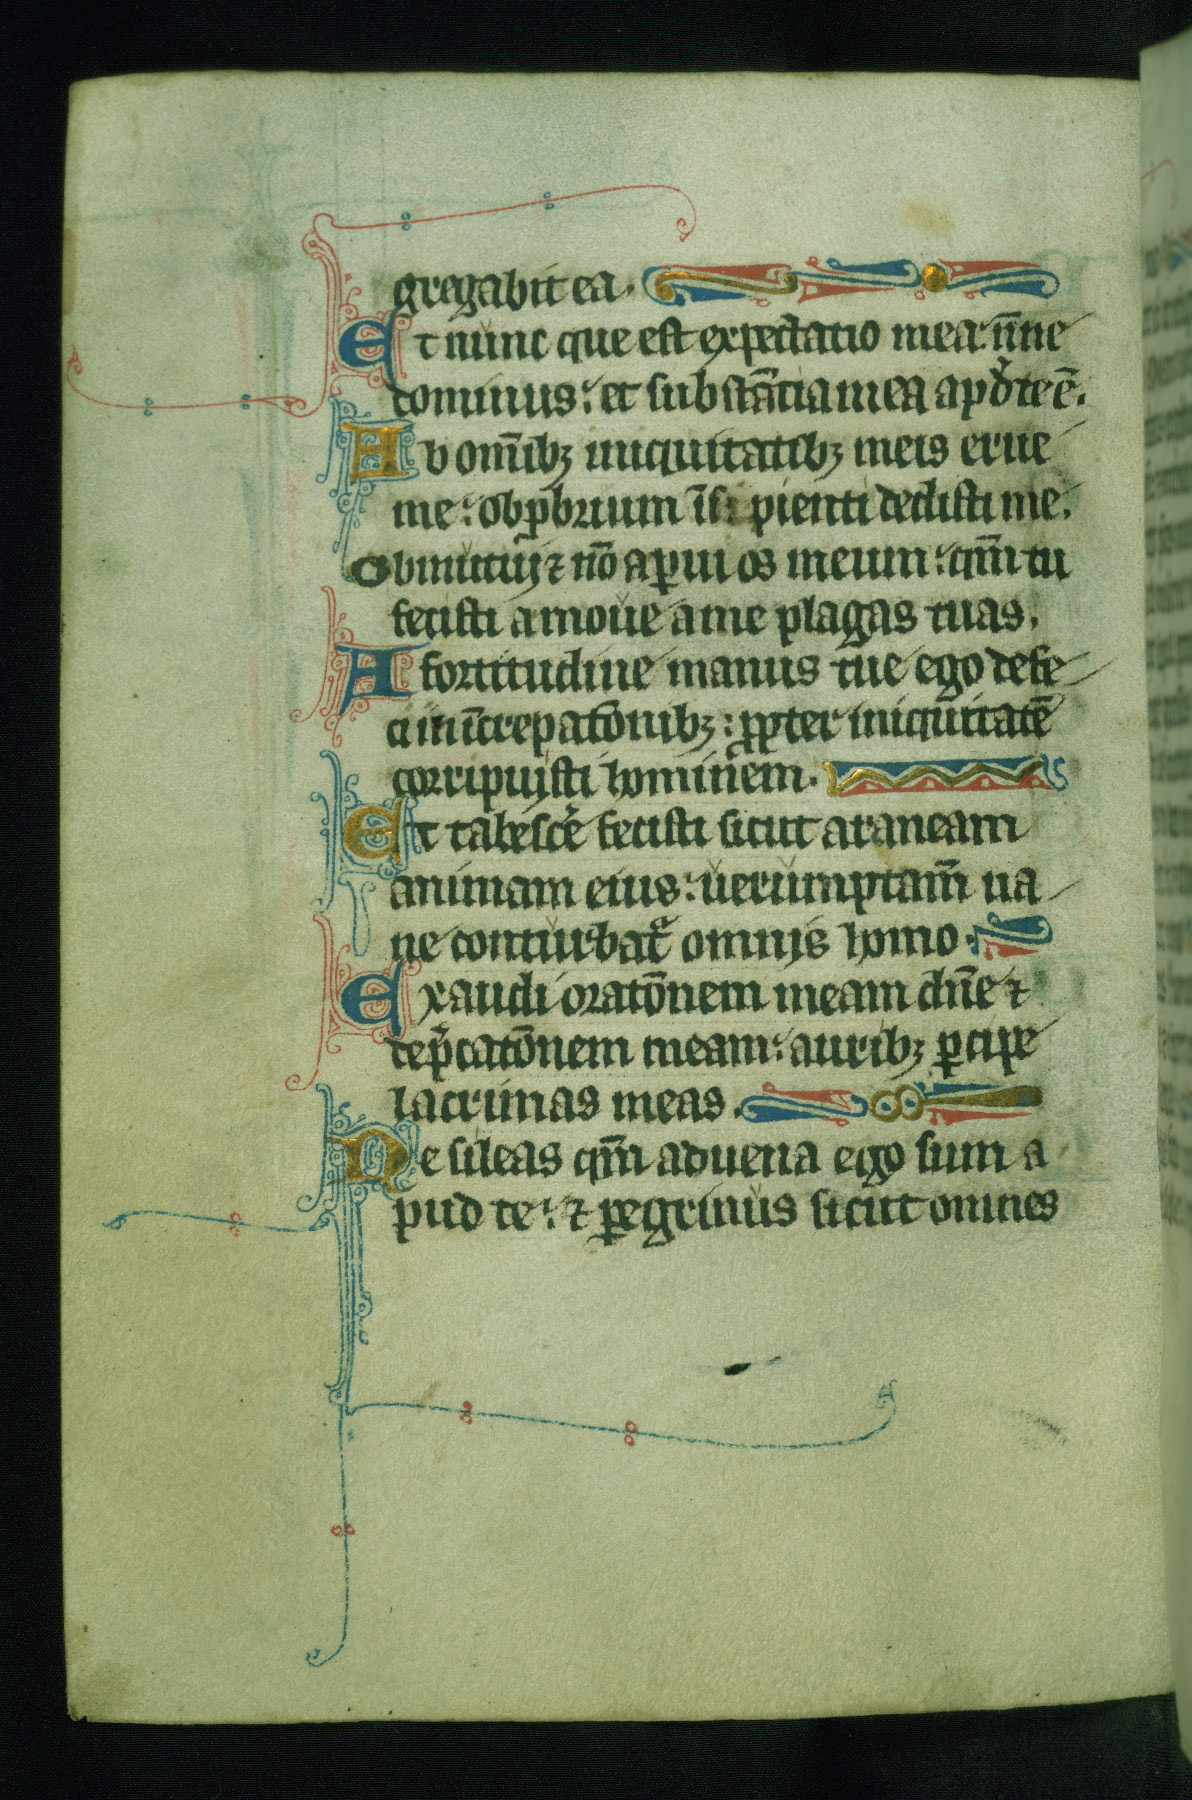 gregabit ea.
Et nunc que est expectatio mea: nn̄e
dominus: et substāntia mea apd̛ te ē.
Ab om̄ibꝫ iniquitatibꝫ meis erue
me: obp̄brium īsipienti dedisti me.
Obmutui ⁊ nō aꝑui os meum: qm̄ tu
fecisti amoue a me plagas tuas.
A fortitudine manus tue ego defe
ci in īcrepatōnibꝫ: ꝓpter iniquitatē
corripuisti hominem.
Et tabescēe fecisti sicut araneam
animam eius: uerumptam̄ ua
ne conturbatᷣ omnis homo.
Exaudi oratōnem meam dn̄e ⁊
dep̄catōnem meam: auribꝫ ꝑcipe
lacrimas meas.
Ne sileas qm̄ aduena ego sum a
pud te: ⁊ ꝑegrinus sicut omnes